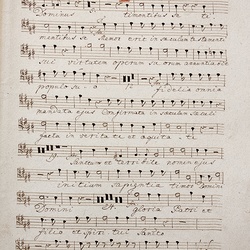 Dominus timentibus se
mentibus se Memor erit in saeculum testamenti
sui virtutem operum suorum annuntiabit
populo suo Fidelia omnia
mandata ejus Confirmata in saeculum saeculi
facta in veritate et aequitate
Sanctum et terribile nomen ejus
initium Sapientiae timor Domini
Domini gloria Patri et
filio et Spiritui Sancto